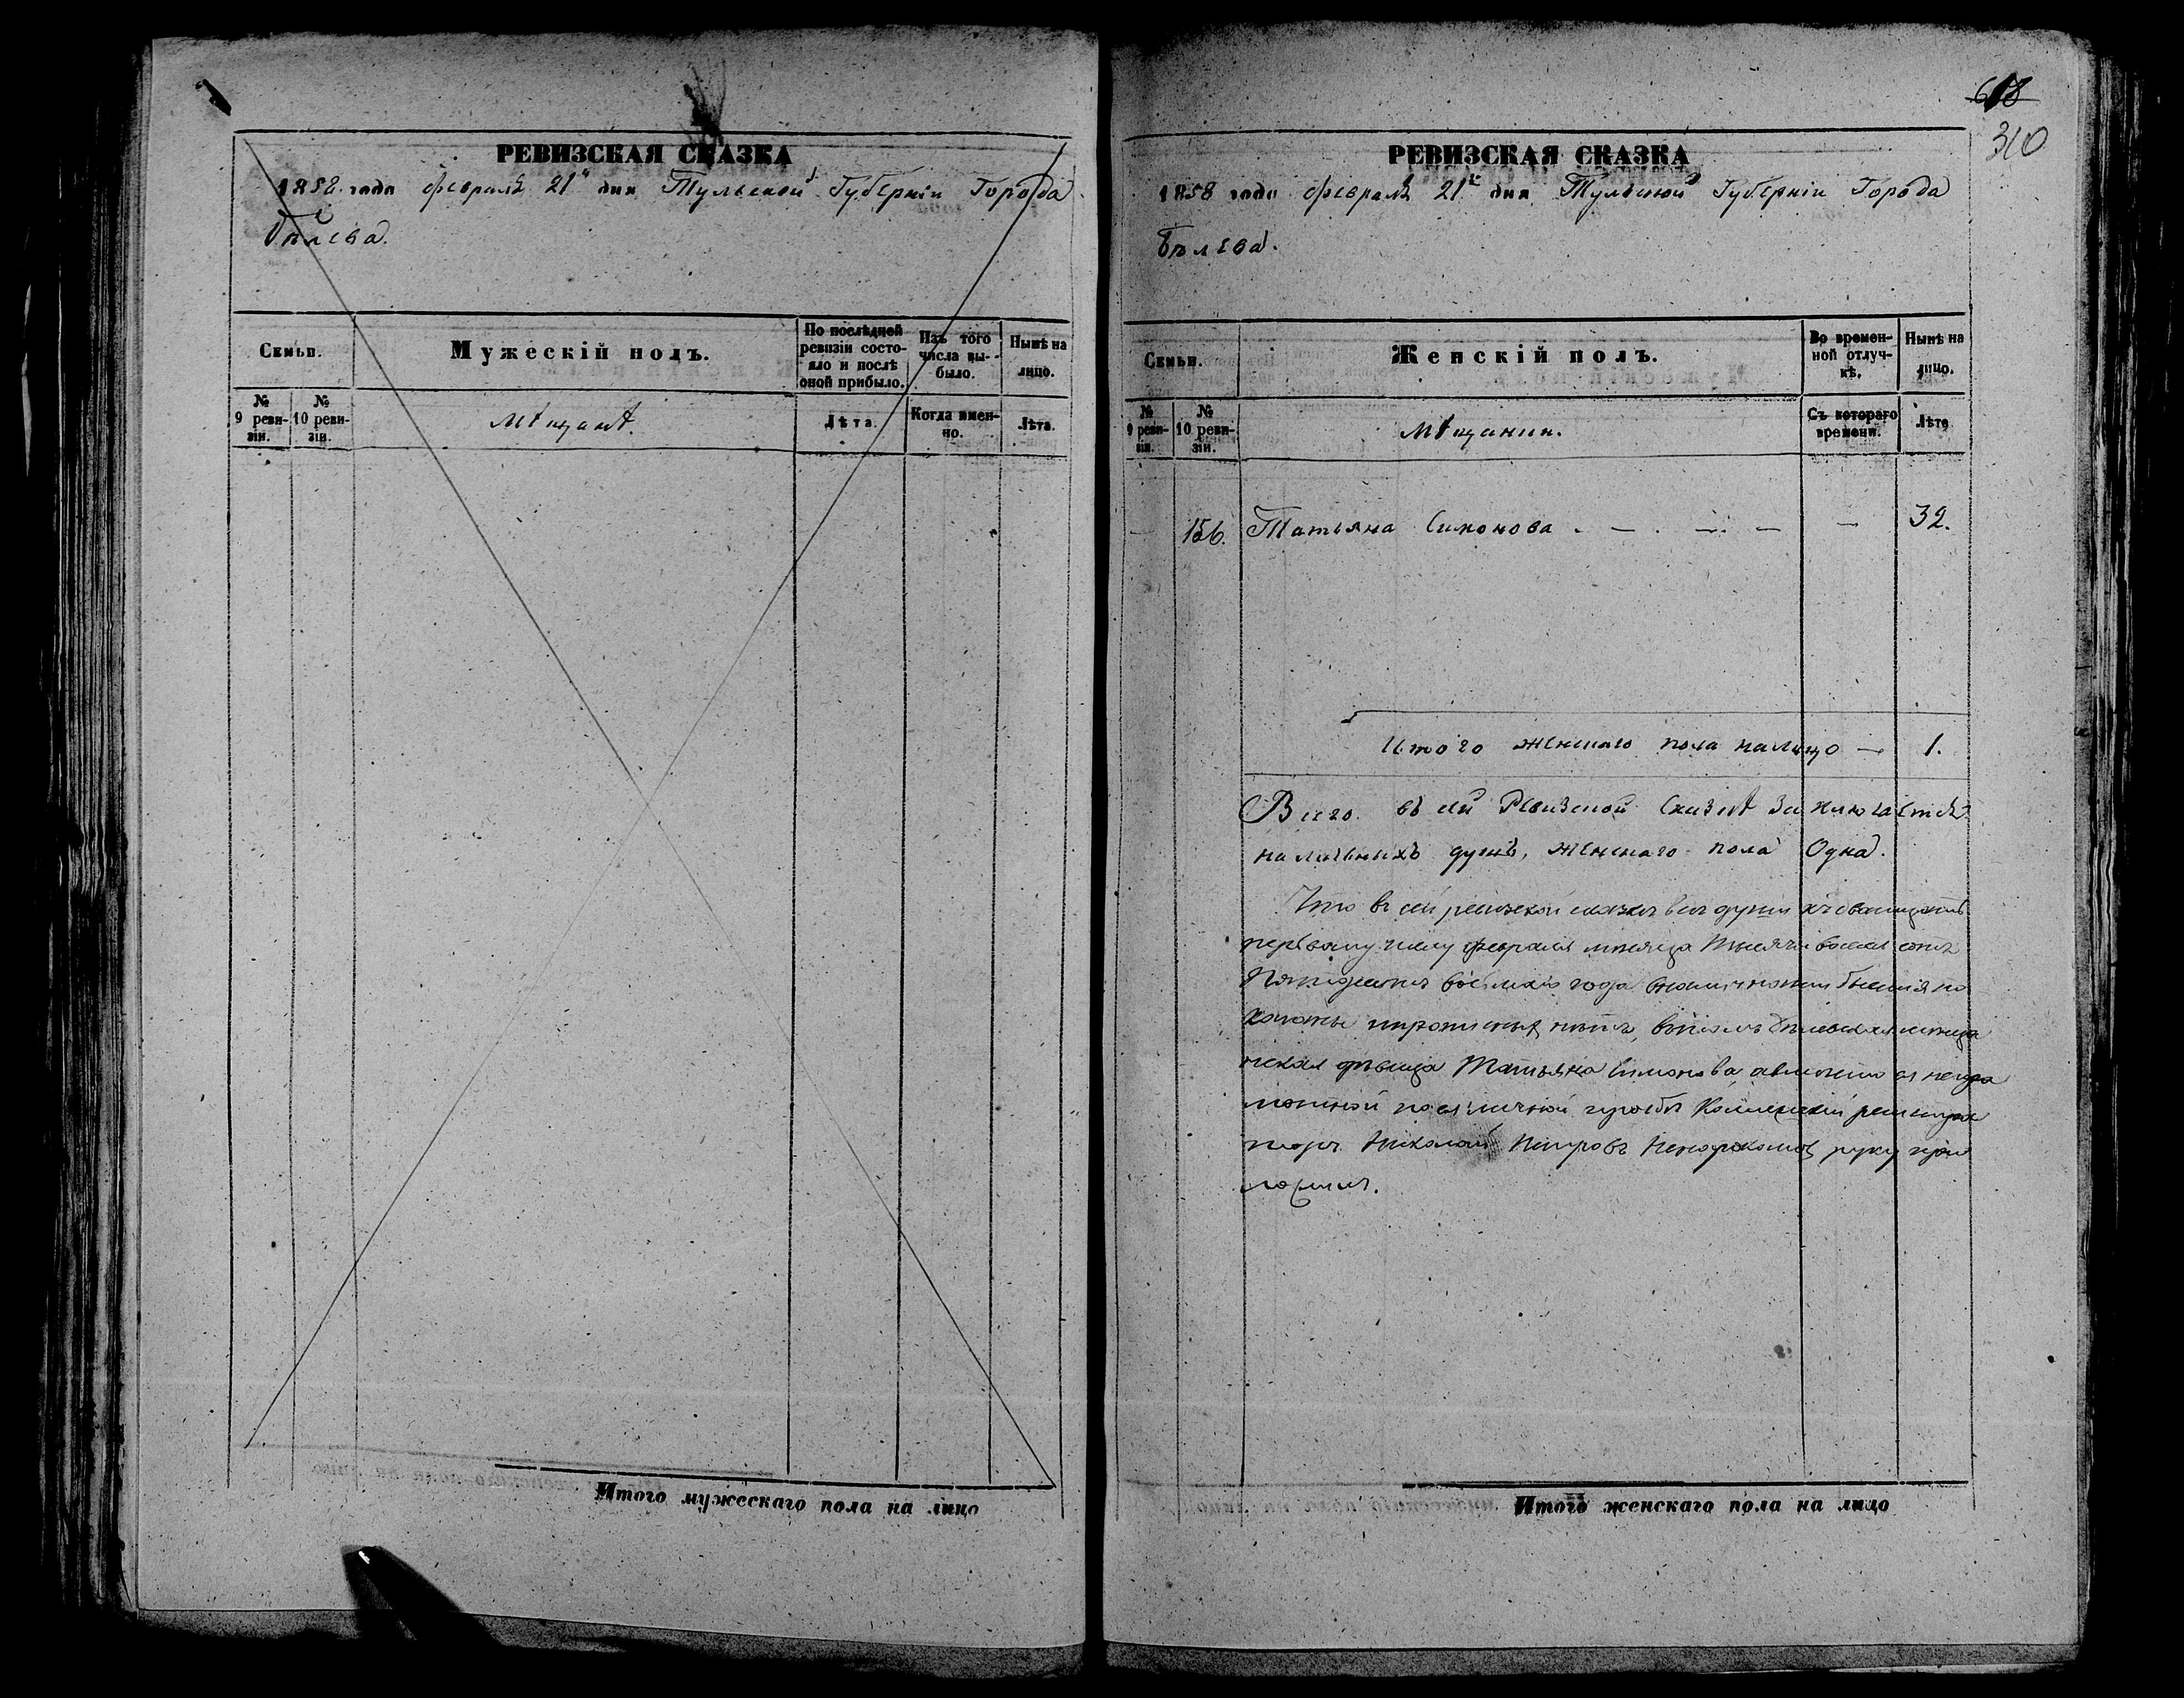 РЕВИЗСКАЯ СКАЗКА
1858 года февраля 21 дня Тульской Губерніи Города
Бѣлева.
Семьи.
Мужескій полъ.
По послѣдней ревизіи состо-
яло и послѣ
оной прибыло.
Изъ того
числа вы-
было.
Нынѣ на
лицо.
№
9 реви-
зіи.
№
10 реви-
зіи.
Мѣщанѣ.
Лѣта.
Когда имен-
но.
Лѣта.
Итого мужескаго пола на лицо
618
310
РЕВИЗСКАЯ СКАЗКА
1858 года февраля 21 дня Тульской Губерніи Города
Бѣлева.
Семьи.
Женскій полъ.
Во времен-
ной отлуч-
кѣ.
Нынѣ на
лицо.
№
9 реви-
зіи.
№
10 реви-
зіи.
Мѣщанки.
Съ котораго
времени.
Лѣта
— 156. Татьяна Симонова . — . — . — — 32.
Итого женскаго пола налицо — 1.
Всего въ сей Ревизской Сказкѣ Заключается
наличныхъ душъ, женскаго пола Одна.
Что въ сей ревизской сказкѣ всѣ души къ двадцать
первому числу февраля мѣсяца тысяча восемь сотъ
Пятьдесятъ восьмаго года
нѣтъ, въ томъ Бѣлевская мѣща
нская дѣвица Татьяна Симонова а вместо ея негра
мотной по ея личной просьбѣ Коллежскій регистра
торъ Николай Петровъ руку при
ложилъ.
Итого женскаго пола на лицо